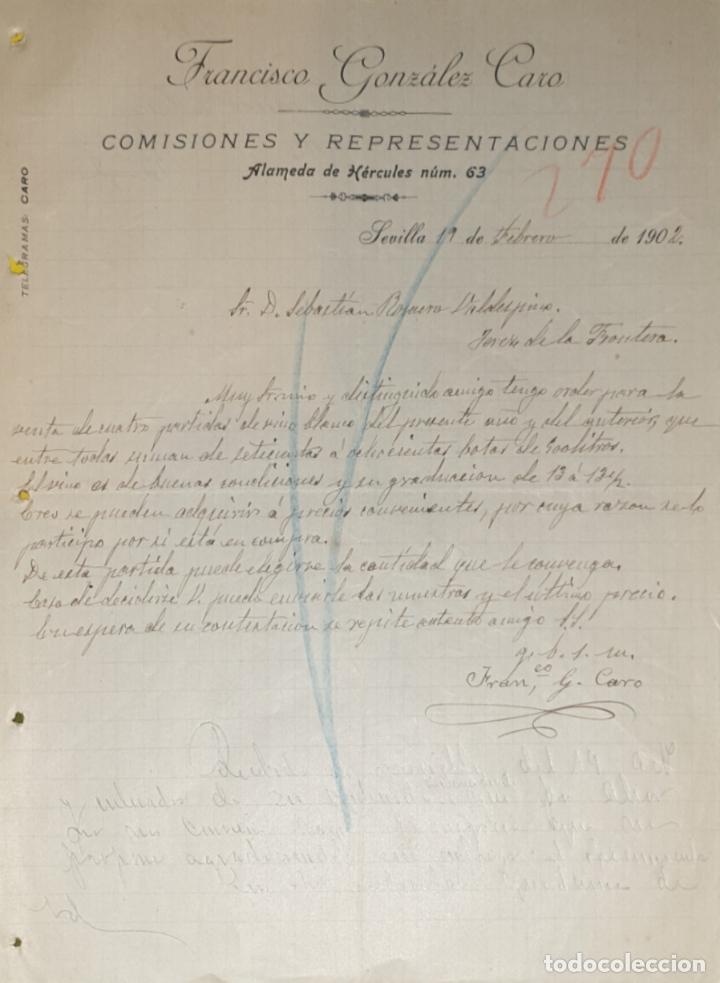 Francisco González Caro
COMISIONES Y REPRESENTACIONES
Alameda de Hércules núm. 63
TELEGRAMAS: CARO
270
Sevilla 19 de Febrero de 1902.
Sr. D. Sebastián Romero Valdespino.
Jerez de la Frontera.
Muy Sr mio y distinguido amigo tengo orden para la
venta de cuatro partidas de vino blanco del presente año y del anterior, que
entre todas suman de setecientas á ochocientas botas de 500 litros.
El vino es de buenas condiciones y su graduacion de 13 á 13½.
Creo se pueden adquirir á precios convenientes, por cuya razon se lo
participo por si está en compra.
De esta partida puede elegirse la cantidad que le convenga.
Caso de decidirse V. puedo enviarle las muestras y el último precio.
En espera de su contestacion se repite atento amigo S.S.
q. b. s. m.
Fran,co G. Caro
del 19
y enterado de su
agradeciendo
todocoleccion